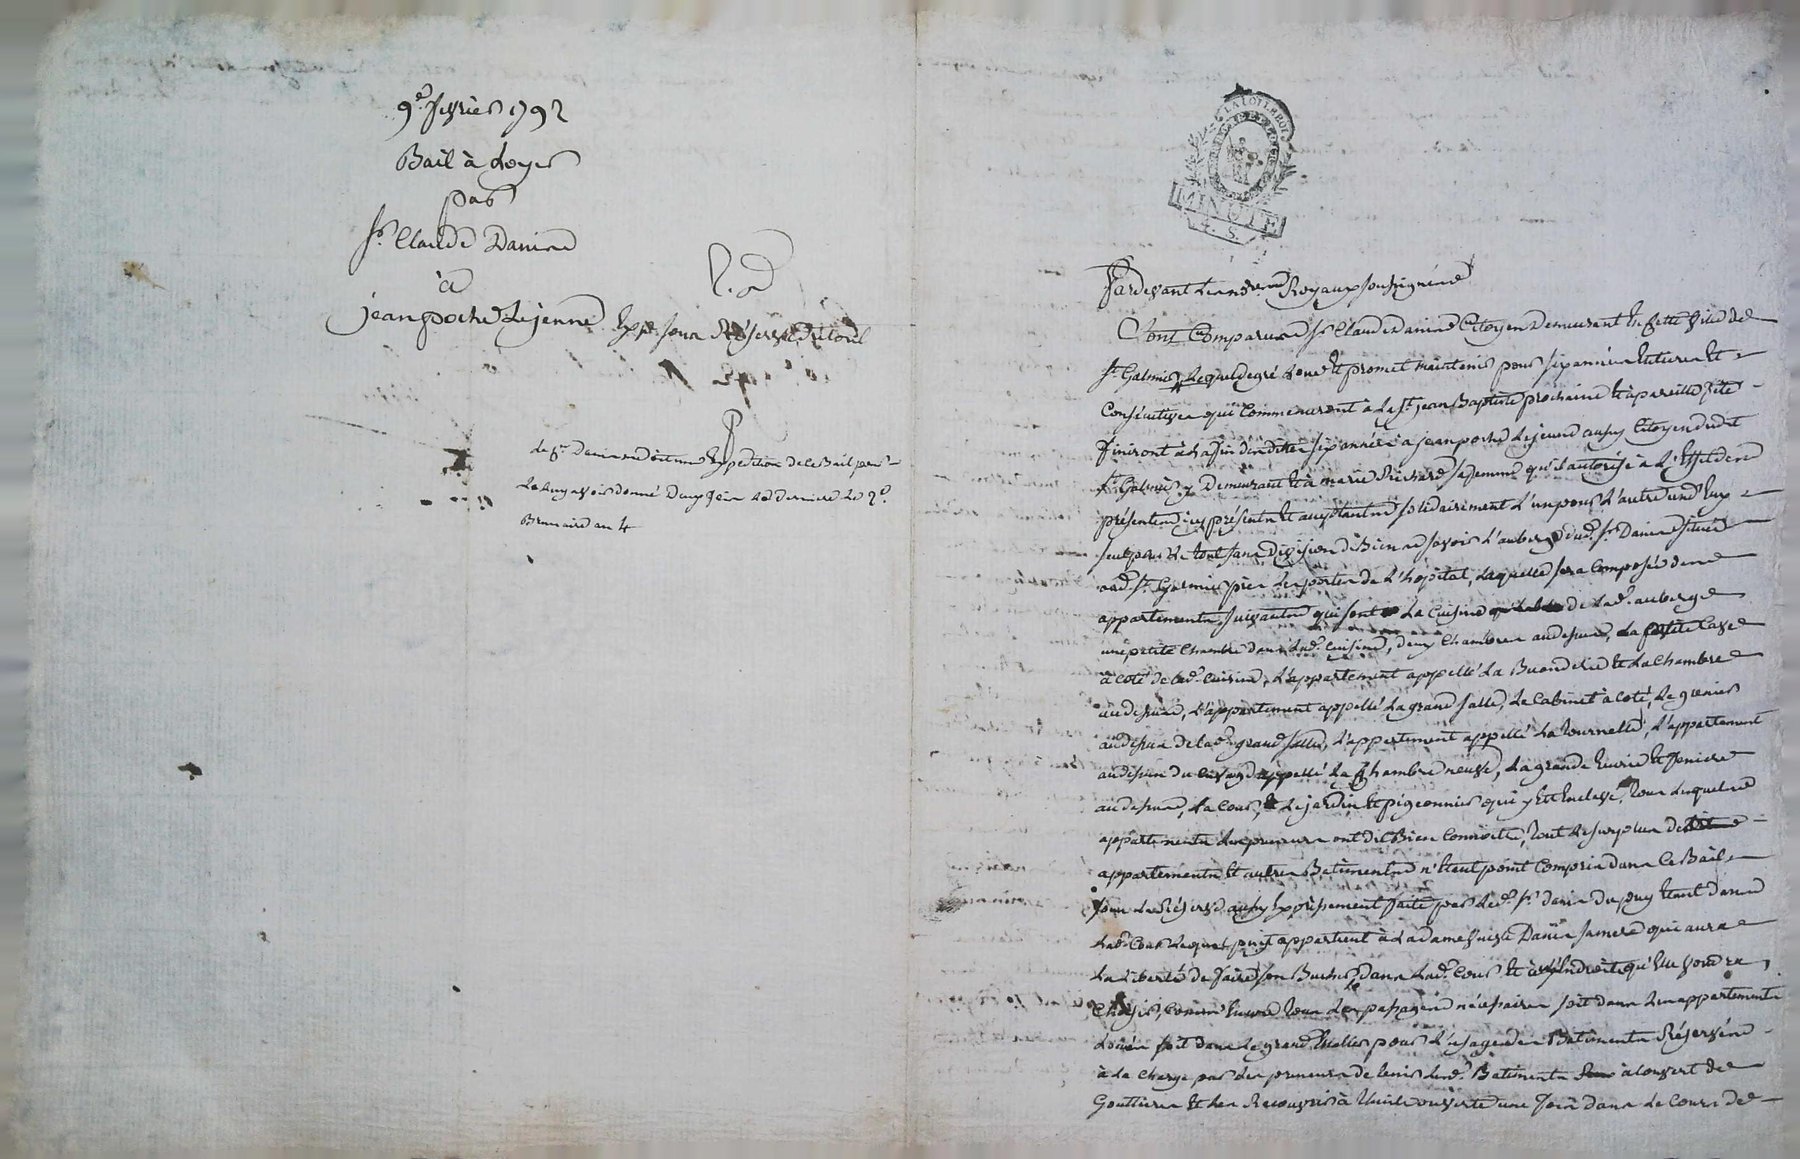 9e. fevrier 1792
Bail à loyer
par
Sr. Claude Danire
à
jean poche Lejeune
Expe. sous Réserve
Le Sr. doit une Expedition de ce Bail pour
Luy avoir donné deux fois la derniere Le 9e.
Brumaire an 4
LA LOI LE ROI
MINUTE
S.
Pardevant Les nres. Royaux soussignés
Sont Comparus Sr. Claude Danire Citoyen demeurant En cette ville de
St. Galmier, Lequel de gré Loue et promet maintenir pour six années Entieres et
Consécutives qui Commenceront à La St. jean Baptiste prochaine et à pareille fête
finiront à la fin desdittes six années à jean poche Lejeune aussy Citoyen dudt.
St. Galmier y demeurant et à marie Richard sa femme qu'il autorise à L'Effet des
présentes icy présents et acceptants solidairement L'un pour L'autre un d'Eux
seul pour Le tout sans division de Biens savoir L'auberge dud. Sr. Danire située
aud. St. Galmier près Les portes de L'hopital, Laquelle sera Composée des
appartements suivants qui sont La Cuisine de Lad. auberge
une petite Chambre dans Lad. Cuisine, deux Chambres audessus, La petite Cave
à coté de Lad. Cuisine, L'appartement appellé La Buanderie et La Chambre
audessus, L'appartement appellé La grand salle, Le Cabinet à coté, Le grenier
audessus de Lad. grand salle, L'appartement appellé La tournelle, L'appartement
audessus du appellé La Chambre neuve, La grande Ecurie et feniere
audessus, La Cour, et Le jardin et pigeonnier qui y Est Enclavé, tous Lesquels
appartements Les preneurs ont dit Bien Connoitre, tout Le surplus des
appartements et autres Batiments n'Etant point Compris dans Ce Bail
sous La Réserve aussy Expressement faite par Led. Sr. du puy Etant dans
Lad. Cour Lequel puy appartient à La dame veuve sa mere qui aura
La liberté de faire son Bucher dans Lad. Cour Et à L'Endroit qu'Elle voudra
Choisir, Comme Encore tous Les passages nécessaires soit dans Les appartements
Loués soit dans Le grand pour L'usage des Batiments Réservés
à La Charge par Les preneurs de tenir Lesd. Batiments à Couvert de
Gouttieres Et Les Recouvrir à une fois dans Le Cours de